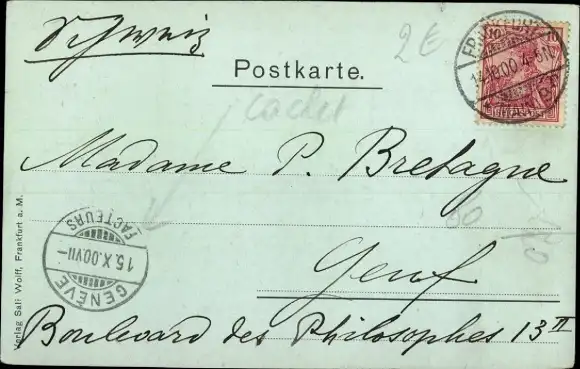 Schweiz
2 €
Postkarte.
cachet
Madame P. Bretagne
Genf
Boulevard des Philosophes 13 II
10 10
FRANKFURT
4-5N
GENÈVE
15.X.00 VII-
FACTEURS
Verlag Sali Wolff, Frankfurt a. M.